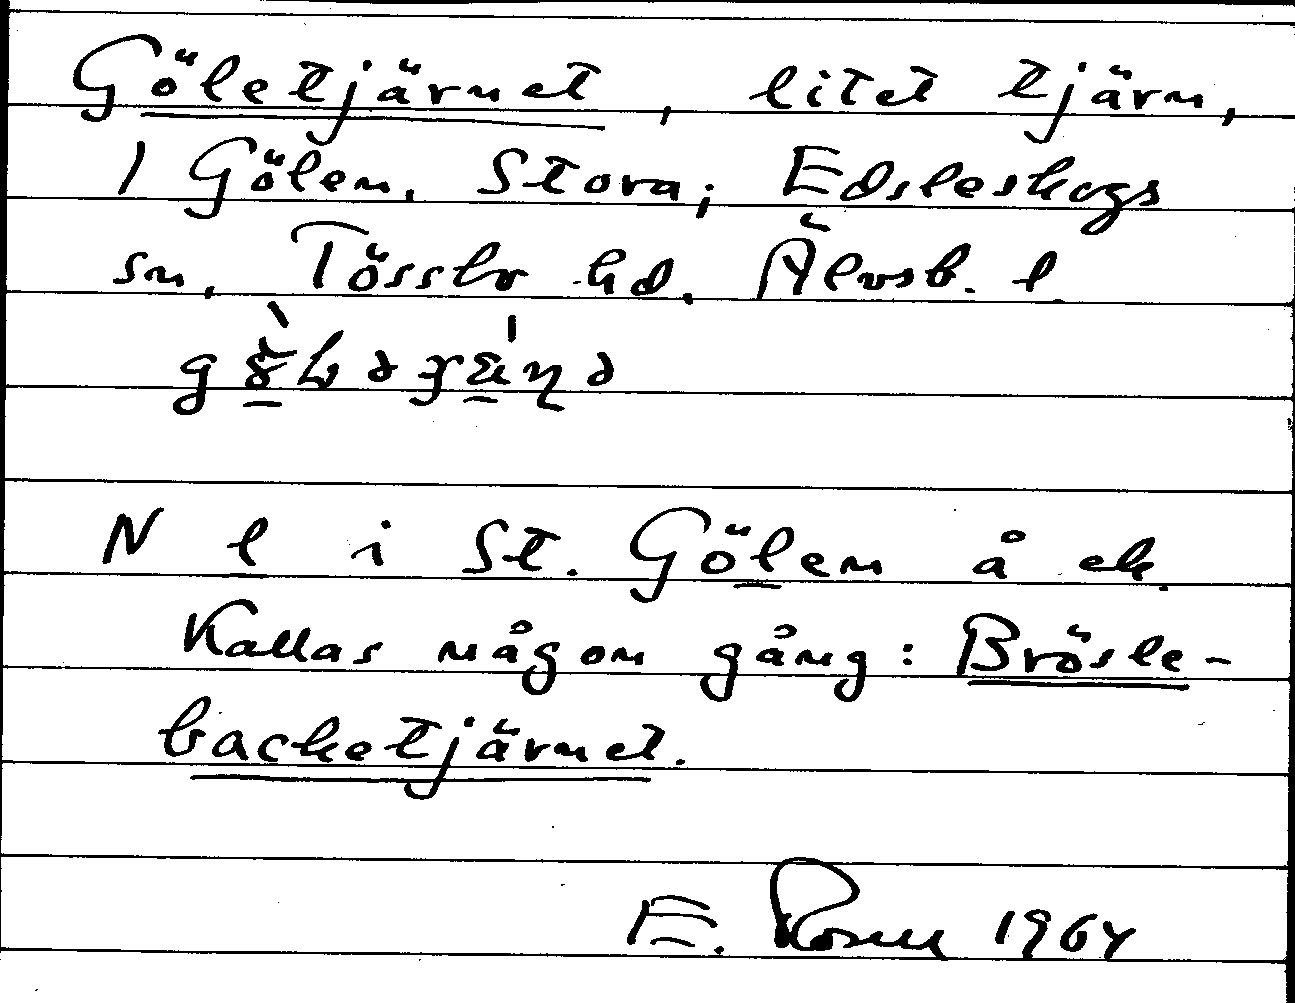 Göletjärnet, litet tjärn,
1 Gölen, Stora; Edsleskogs
sn, Tössbo hd. Älvsb. l.
N l i St. Gölen å ek.
Kallas någon gång: Brösle-
backetjärnet.
E. 1964